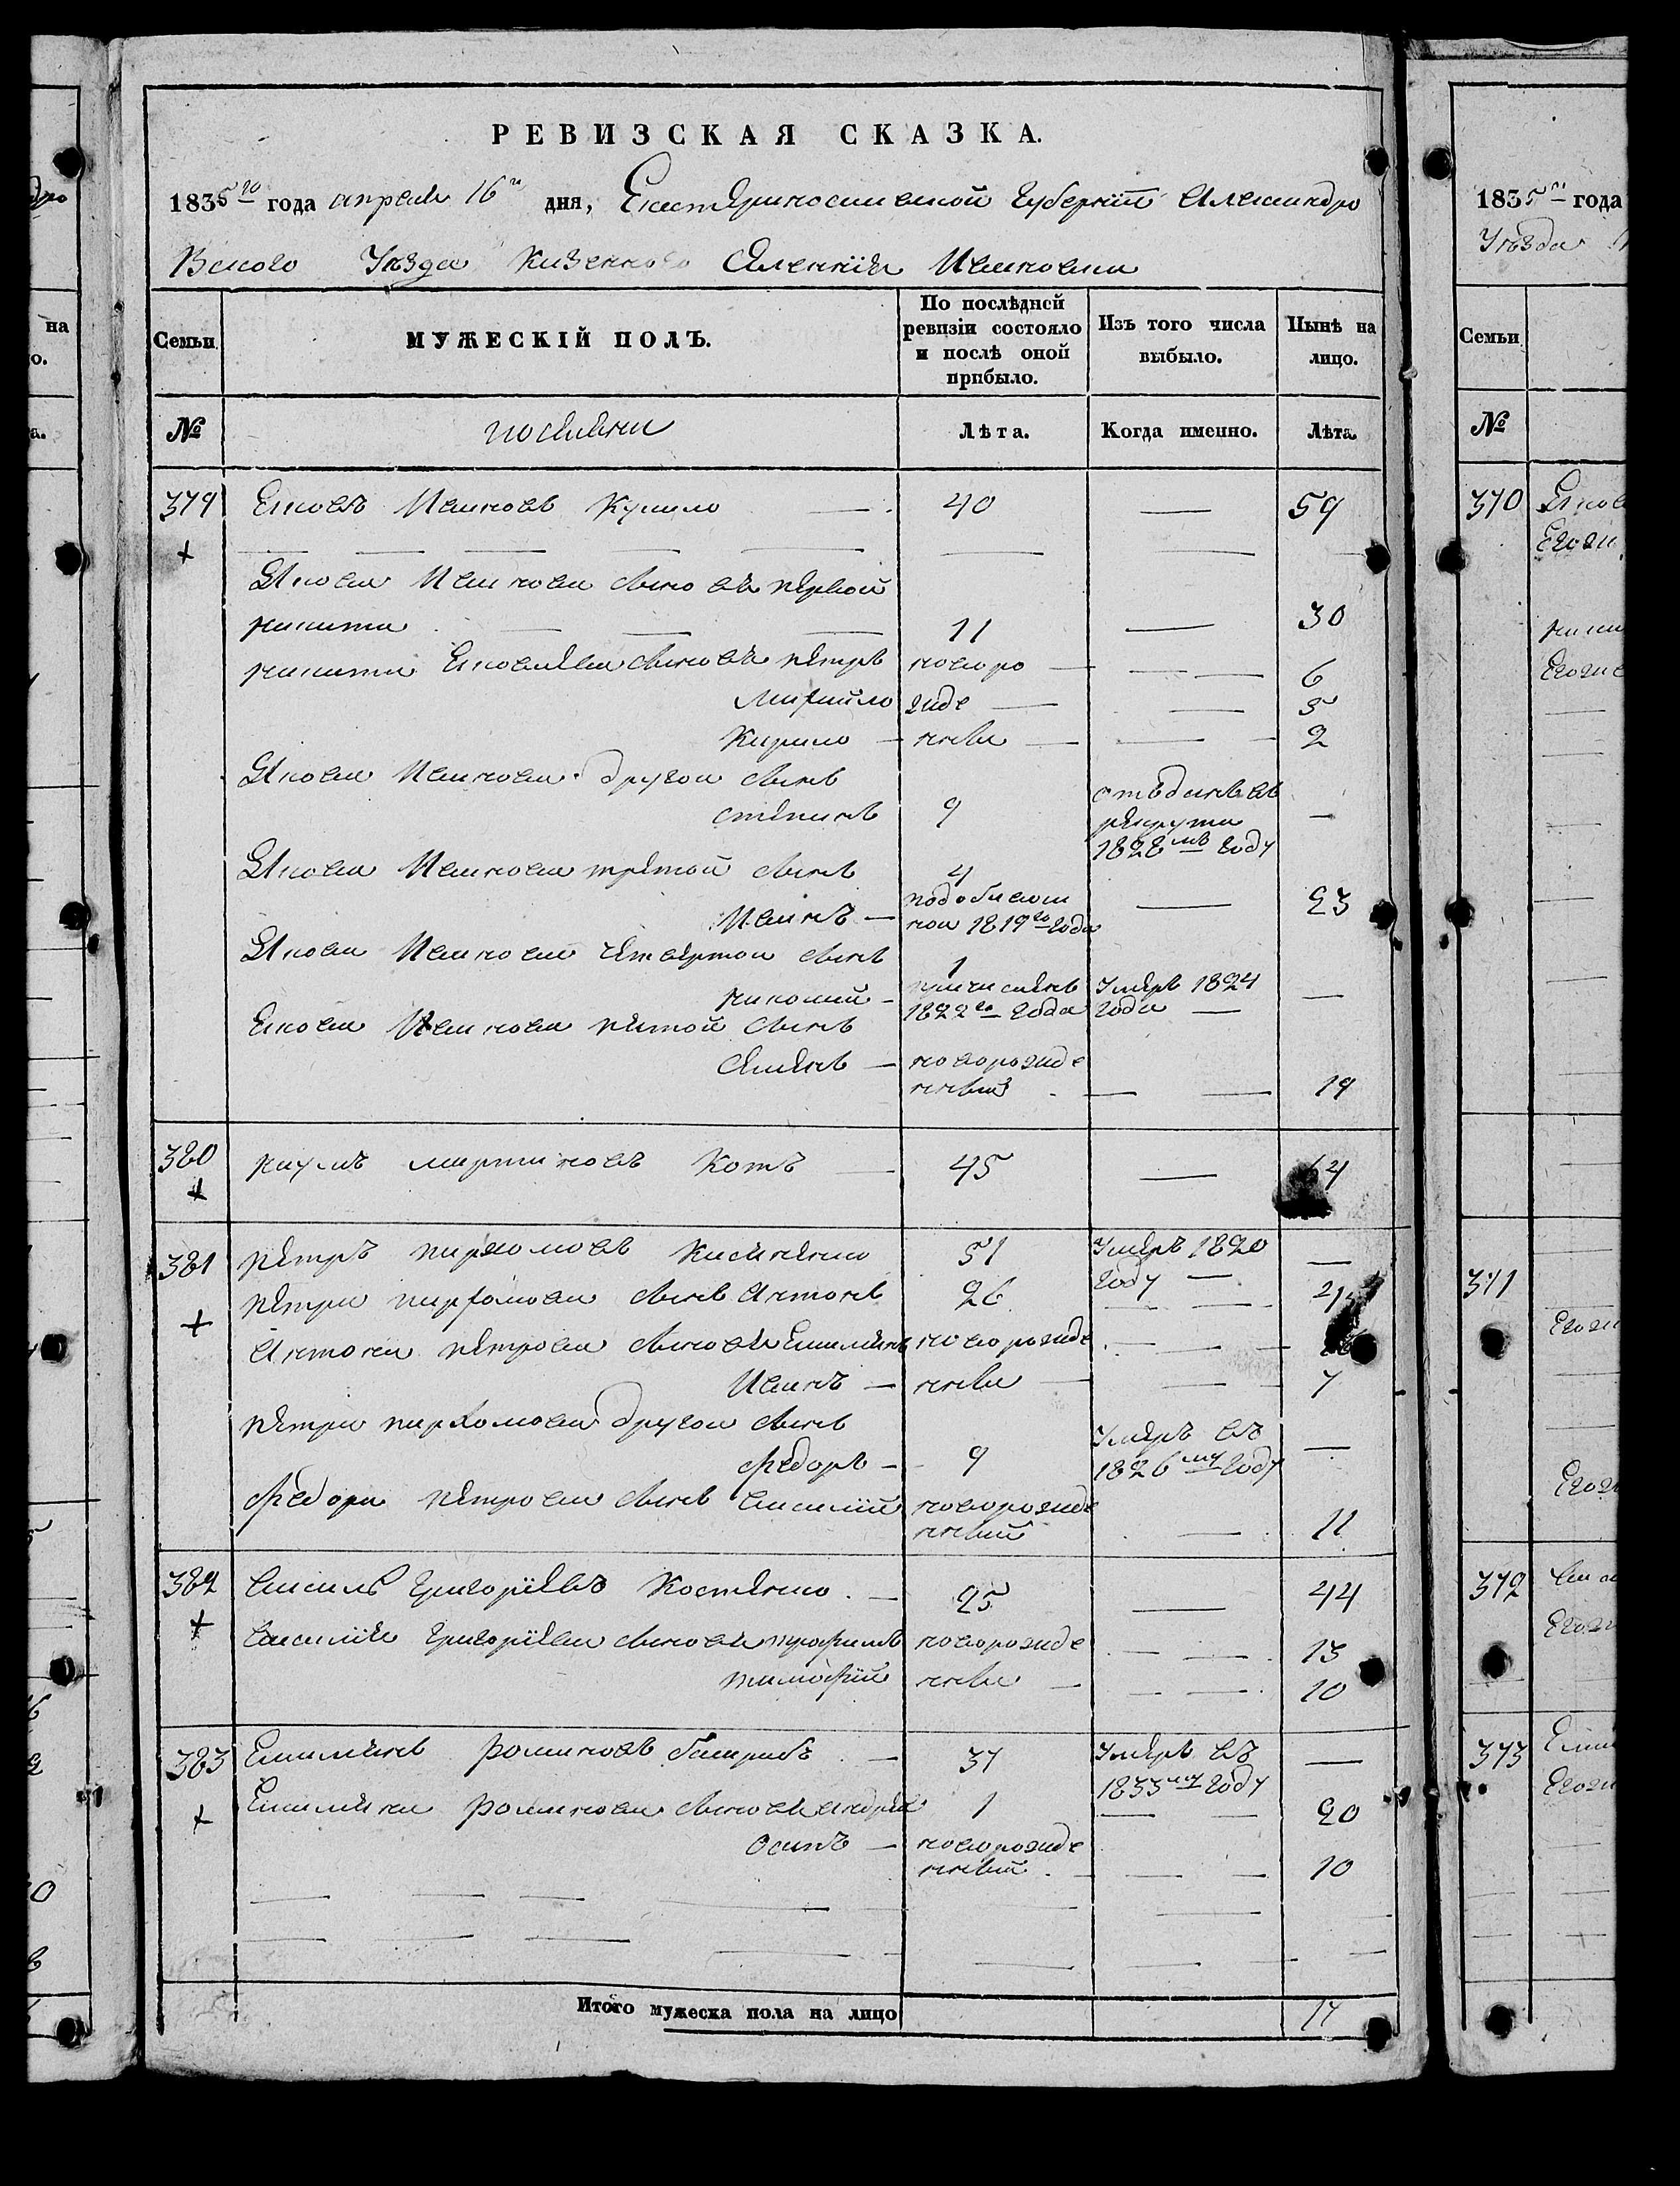 РЕВИЗСКАЯ СКАЗКА.
1835го года апреля 16го дня, Екатеринославской Губернии Александро
Вского Уезда Казенного Селения Ивановки
Семьи
МУЖЕСКІЙ ПОЛЪ.
По послѣдней ревизіи состояло и послѣ оной прибыло.
Изъ того числа выбыло.
Нынѣ на лицо.
№
поселяни
Лѣта.
Когда именно.
Лѣта
379 Яковъ Ивановъ 40 — 59
Якова Иванова сыновя первой
никита 11 — 30
никити Яковлева сыновя петръ новоро — 6
михайло жде — 5
Кирило — нныи — 2
Якова Иванова другои сынъ
степанъ 9 отъданъ въ рекрути 1828мъ году —
Якова Иванова третой сынъ 4
Иванъ — нои 1819го года — 23
Якова Иванова четвертои сынъ 1
николай — причисленъ 1822го года Умеръ 1824 года —
Якова Иванова пятой сынъ
Семенъ — новорожде нный — 19
380 наумъ мартиновъ Котъ 45 — 64
381 петръ пархомовъ 51 Умеръ 1820 году —
петра пархомова сынъ антонъ 26
антона петрова сыновя Емилянъ новорожде
Иванъ — нныи — 7
петра пархомова другои сынъ
федоръ — 9 Умеръ въ 1826му году —
федора петрова сынъ василий новорожде нный — 11
382 василь григориевъ Костенко 25 — 44
василия григориева сыновя трофимъ новорожде — 13
тимофий нныи — 10
383 Емилянъ романовъ 37 Умеръ въ 1833му году —
Емиляна романова сыновя андрей 1 — 20
осипъ — новорожде нный — 10
Итого мужеска пола на лицо 17
1835го года
Уезда
Семьи
№
370
371
372
373
на
о.